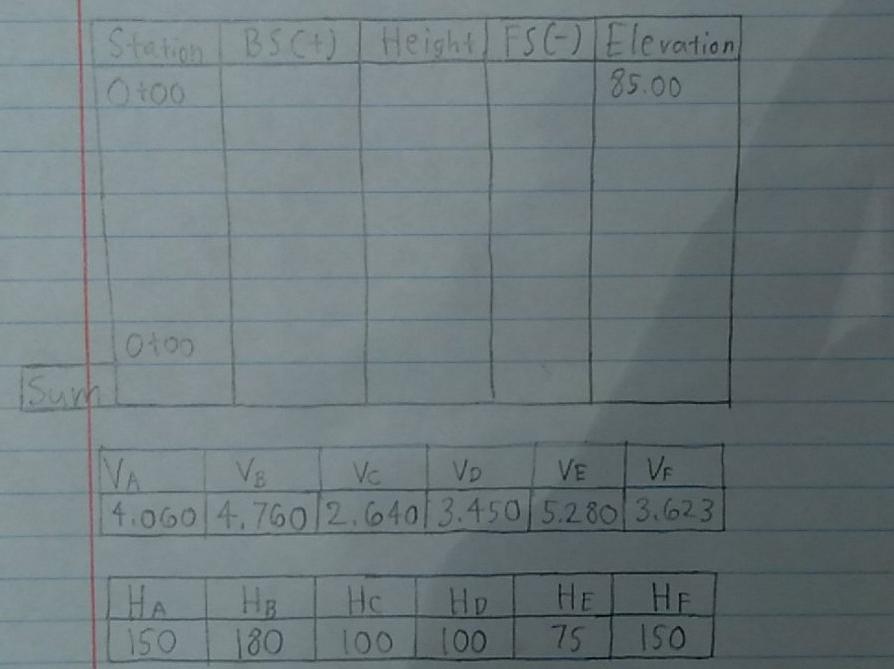 Station BS(+) Height FS(-) Elevation
0+00 85.00
0+00
Sum
VA VB VC VD VE VF
4.060 4.760 2.640 3.450 5.280 3.623
HA HB HC HD HE HF
150 180 100 100 75 150